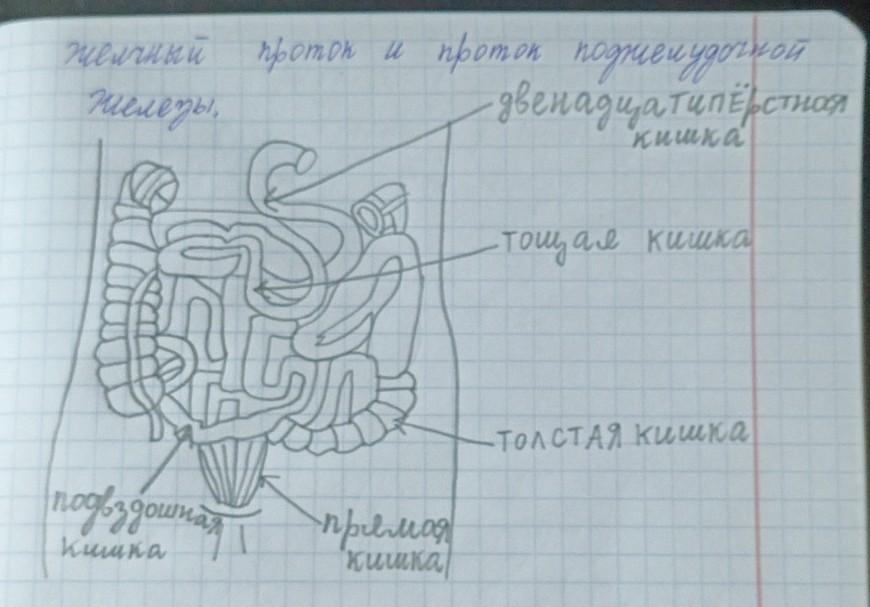 желчный проток и проток поджелудочной
железы.
двенадцатипёрстная
кишка
тощая кишка
толстая кишка
подвздошная
кишка
прямая
кишка